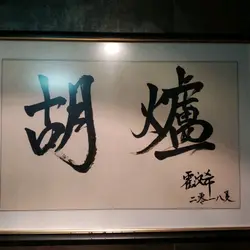 胡爐
霍汶希
二零一八美